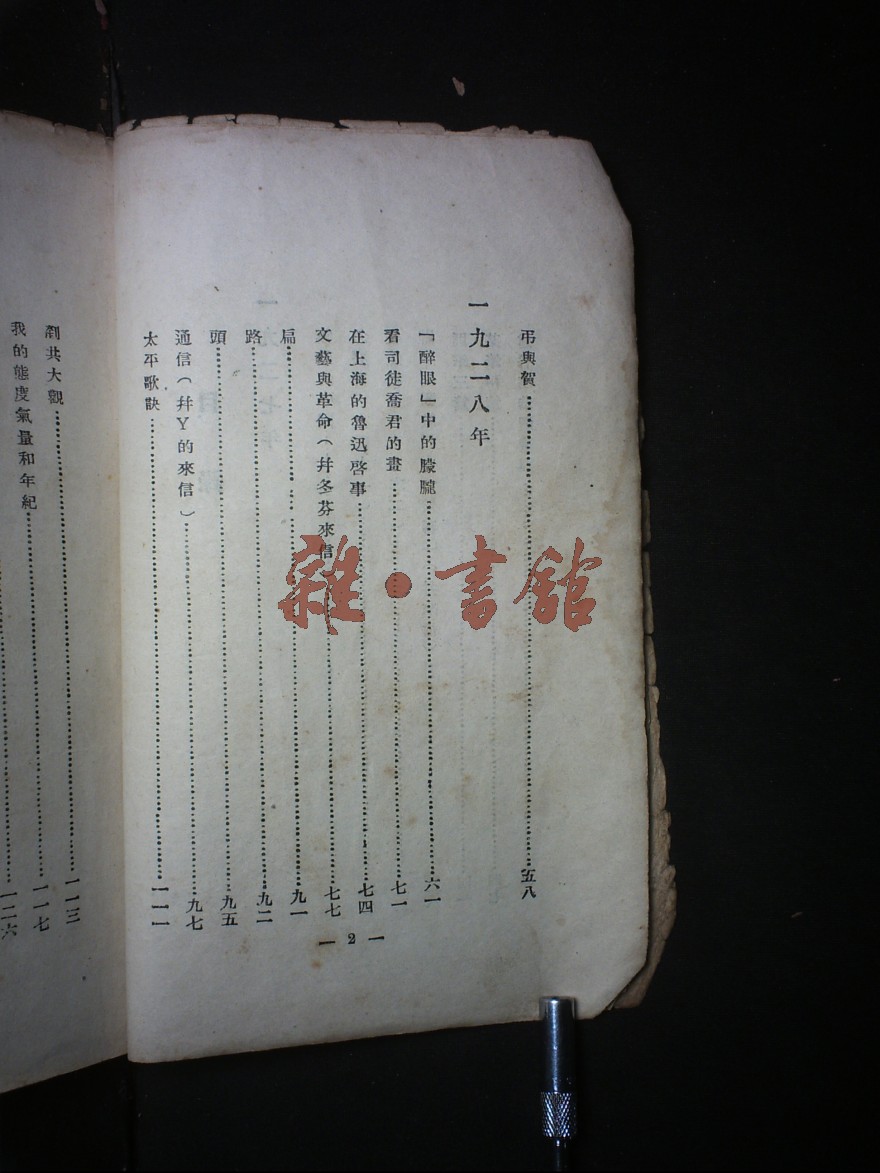 弔與賀……五八
一九二八年
「醉眼」中的朦朧……六一
看司徒喬君的畫……七一
在上海的魯迅啓事……七四
文藝與革命（幷冬芬來信）……七七
扁……九一
路……九二
頭……九五
通信（幷Y的來信）……九七
太平歌訣……一一一
剷共大觀……一一三
我的態度氣量和年紀……一一七
一二六
— 2 —
雜·書舘